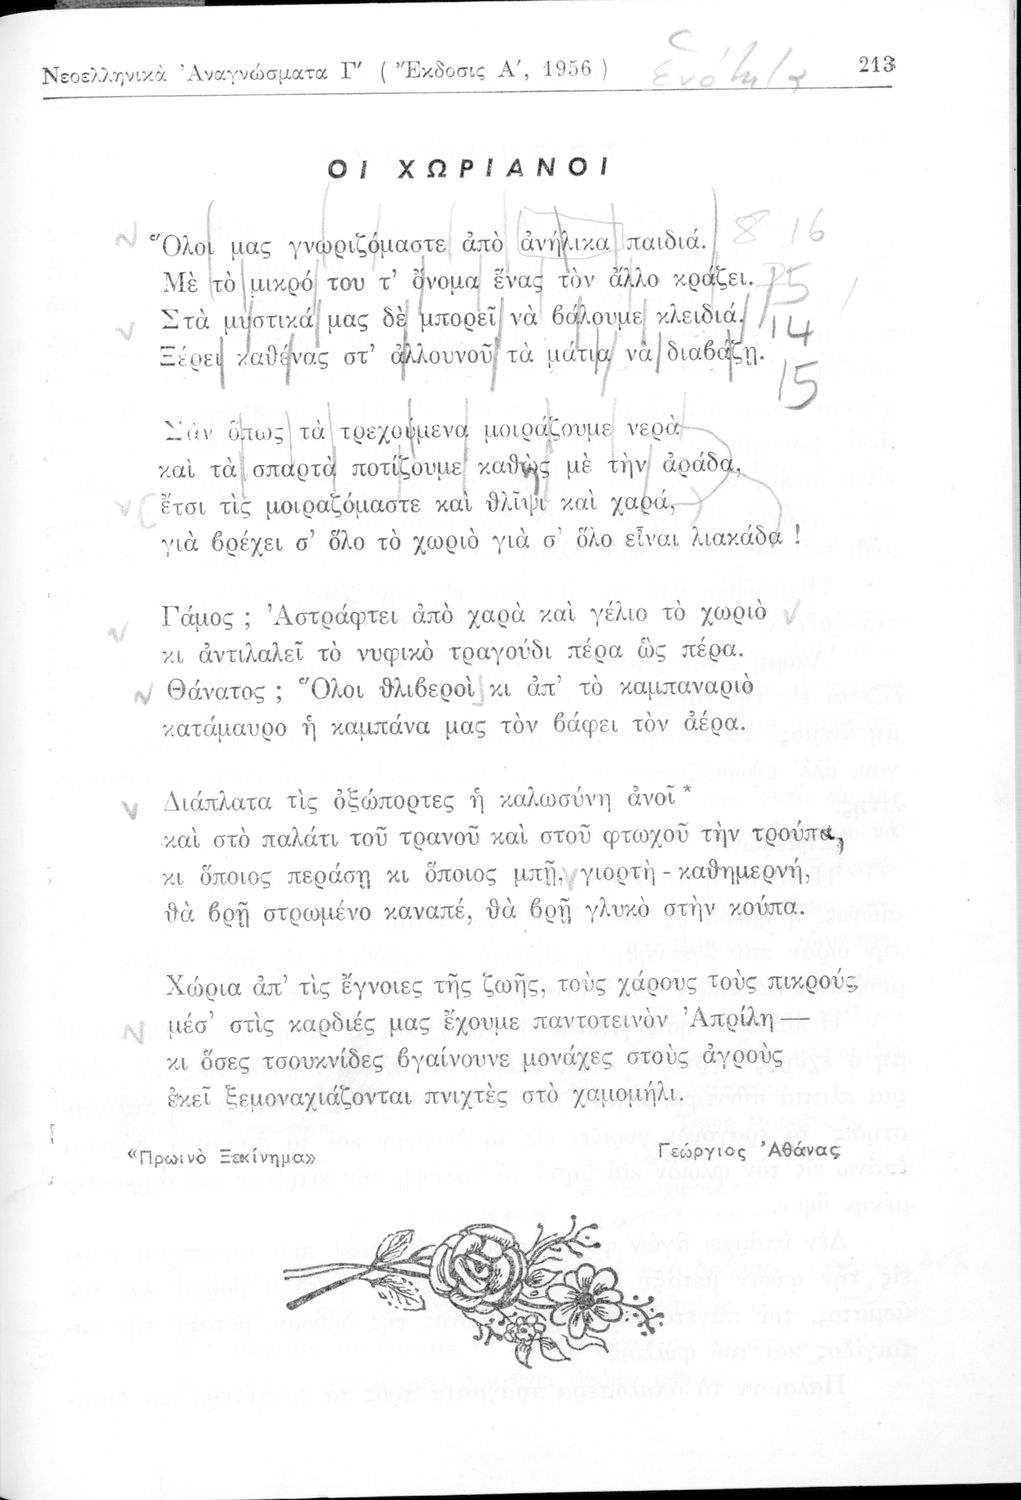 Νεοελληνικὰ Ἀναγνώσματα Γ′ ( Ἔκδοσις Α′, 1956 )
Ἑνότητα
213
ΟΙ ΧΩΡΙΑΝΟΙ
Ὅλοι μας γνωριζόμαστε ἀπὸ ἀνήλικα παιδιά. 8 16
Μὲ τὸ μικρό του τ' ὄνομα ἕνας τὸν ἄλλο κράζει. 15
Στὰ μυστικά μας δὲ μπορεῖ νὰ βάλουμε κλειδιά. 14
Ξέρει καθένας στ' ἀλλουνοῦ τὰ μάτια νὰ διαβάζῃ. 15
Σὰν ὅπως τὰ τρεχούμενα μοιράζουμε νερὰ
καὶ τὰ σπαρτὰ ποτίζουμε καθὼς μὲ τὴν ἀράδα,
ἔτσι τὶς μοιραζόμαστε καὶ θλῖψι καὶ χαρά,
γιὰ βρέχει σ' ὅλο τὸ χωριὸ γιὰ σ' ὅλο εἶναι λιακάδα !
Γάμος ; Ἀστράφτει ἀπὸ χαρὰ καὶ γέλιο τὸ χωριὸ
κι ἀντιλαλεῖ τὸ νυφικὸ τραγούδι πέρα ὣς πέρα.
Θάνατος ; Ὅλοι θλιβεροὶ κι ἀπ' τὸ καμπαναριὸ
κατάμαυρο ἡ καμπάνα μας τὸν βάφει τὸν ἀέρα.
Διάπλατα τὶς ὀξώπορτες ἡ καλωσύνη ἀνοῖ *
καὶ στὸ παλάτι τοῦ τρανοῦ καὶ στοῦ φτωχοῦ τὴν τρούπα,
κι ὅποιος περάσῃ κι ὅποιος μπῇ, γιορτὴ - καθημερνή,
θὰ βρῇ στρωμένο καναπέ, θὰ βρῇ γλυκὸ στὴν κούπα.
Χώρια ἀπ' τὶς ἔγνοιες τῆς ζωῆς, τοὺς χάρους τοὺς πικροὺς
μέσ' στὶς καρδιές μας ἔχουμε παντοτεινὸν Ἀπρίλη —
κι ὅσες τσουκνίδες βγαίνουνε μονάχες στοὺς ἀγροὺς
ἐκεῖ ξεμοναχιάζονται πνιχτὲς στὸ χαμομήλι.
«Πρωινὸ Ξεκίνημα»
Γεώργιος Ἀθάνας